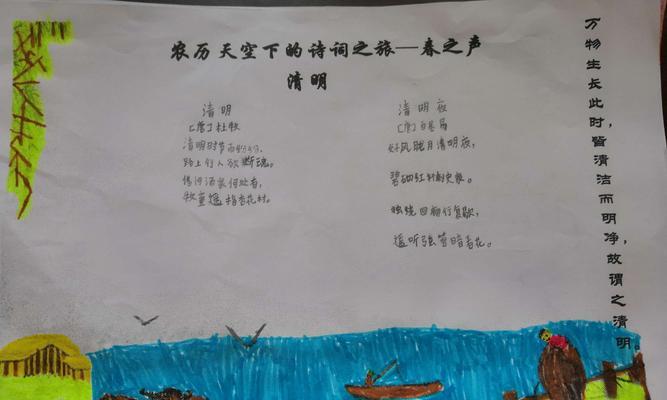 农历天空下的诗词之旅—春之声
清明
清明
[唐]杜牧
清明时节雨纷纷,
路上行人欲断魂。
借问酒家何处有,
牧童遥指杏花村。
清明夜
[唐]白居易
好风胧月清明夜,
碧砌红轩刺史家。
独绕回廊行复歇,
遥听弦管暗看花。
万物生长此时,皆清洁而明净,故谓之清明。